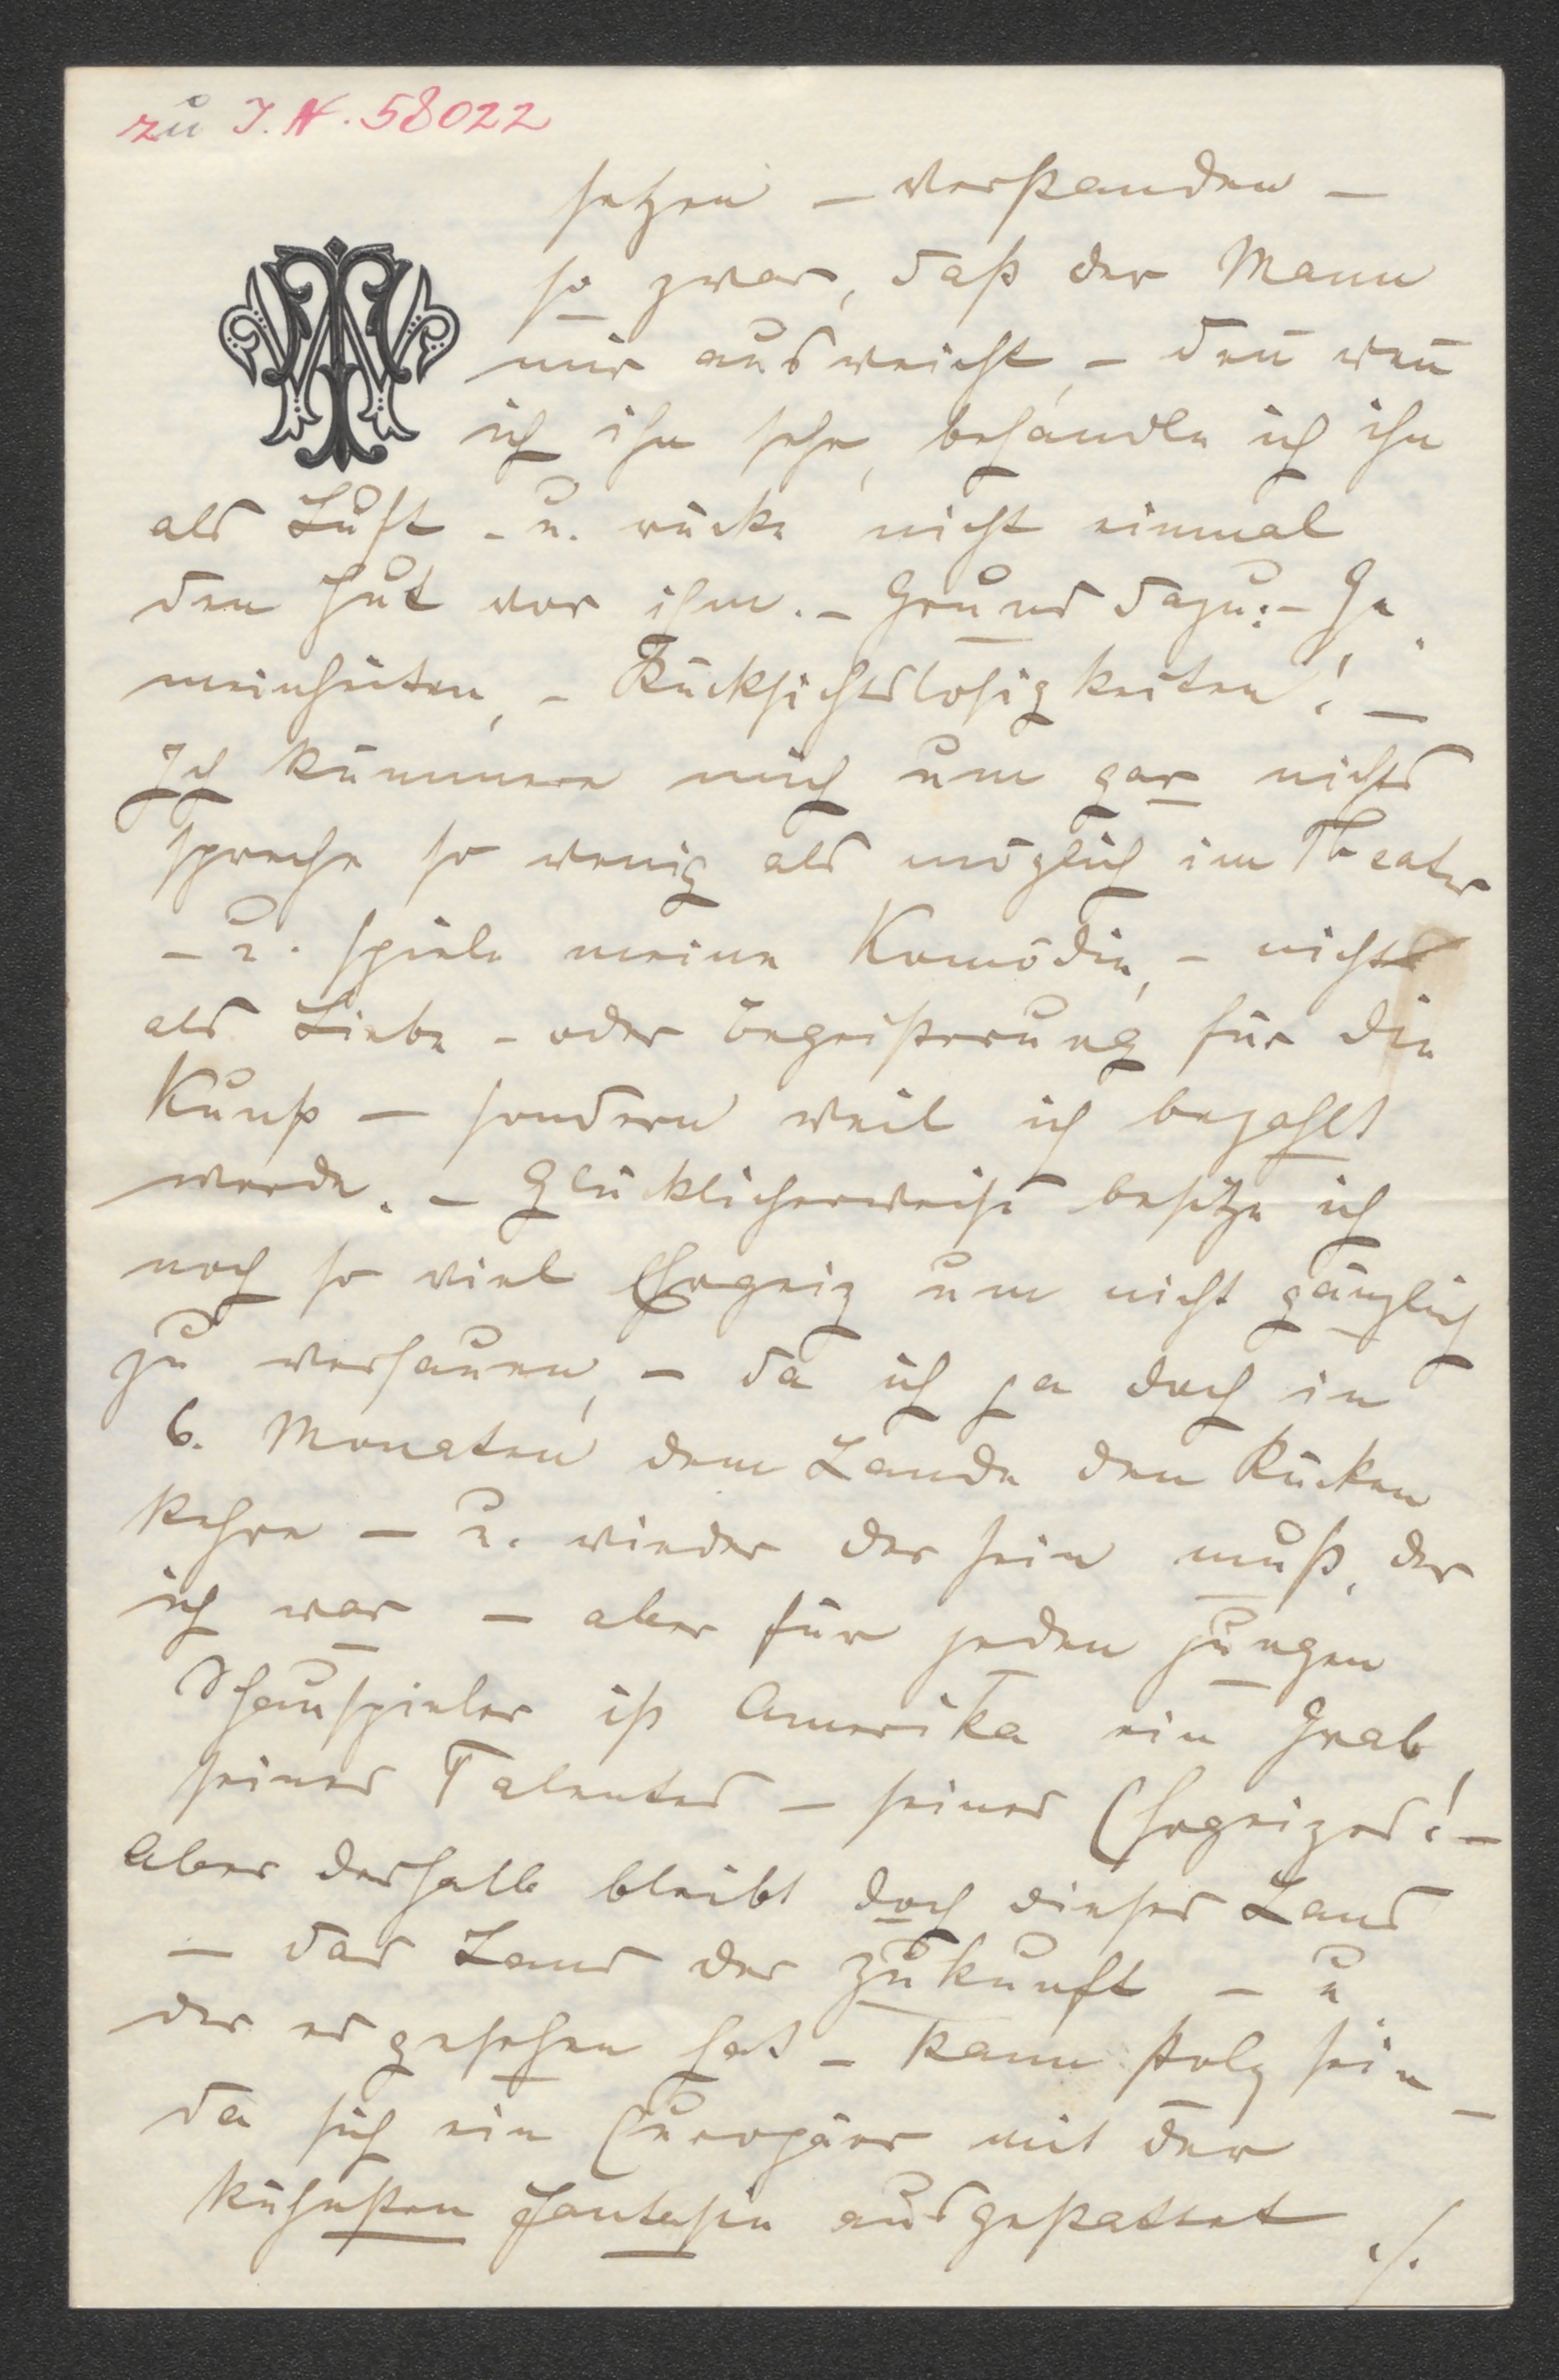 zu I.N. 58022
setzen – verstanden –
so zwar, daß der Mann
mir ausweicht, – den̄ wen̄
ich ihn sehe, behandle ich ihn
als Luft – u. rücke nicht einmal
den Hut vor ihm. – Grund dazu: – Ge
meinheiten, – Rücksichtslosigkeiten! –
Ich kümmere mich um gar nichts
spreche so wenig als möglich im Theater
– u. spiele meine Komödie, – nicht
als Liebe – oder Begeisterung für die
Kunst – sondern weil ich bezahlt
werde. – Glücklicherweise besitze ich
noch so viel Ehrgeiz um nicht gänzlich
zu versauen, – da ich ja doch in
6. Monaten dem Lande den Rücken
kehre – u. wieder der sein muß, der
ich war – aber für jeden jungen
Schauspieler ist Amerika ein Grab
seines Talentes – seines Ehrgeizes! –
Aber deshalb bleibt doch dieses Land
– das Land der Zukunft – u
der es gesehen hat – kann stolz sein –
da sich ein Europäer mit der
kühnsten Fantasie ausgestattet ./.